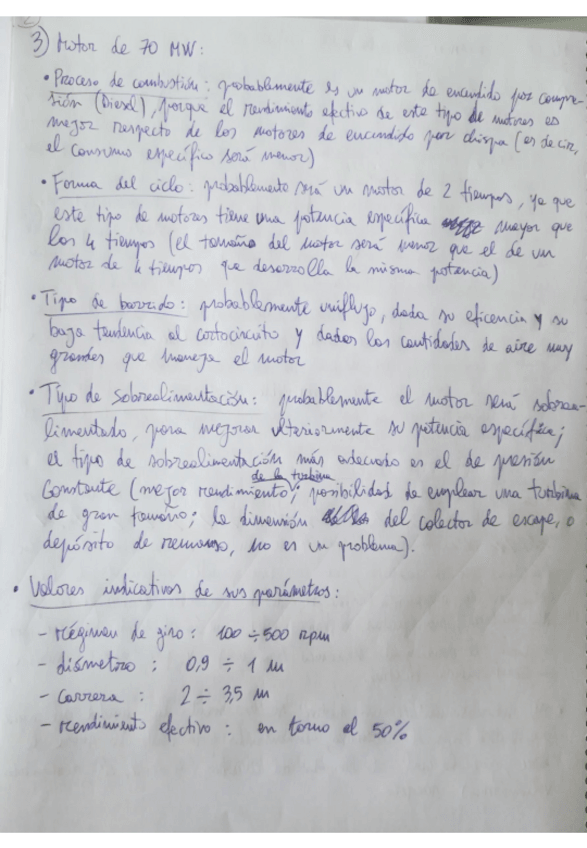 3) Motor de 70 MW:
• Proceso de combustión: probablemente es un motor de encendido por compre-
sión (Diesel), porque el rendimiento efectivo de este tipo de motores es
mejor respecto de los motores de encendido por chispa (es decir,
el consumo específico será menor)
• Forma del ciclo: probablemente será un motor de 2 tiempos, ya que
este tipo de motores tiene una potencia específica mayor que
los 4 tiempos (el tamaño del motor será menor que el de un
motor de 4 tiempos que desarrolla la misma potencia)
• Tipo de barrido: probablemente uniflujo, dada su eficencia y su
baja tendencia al cortocircuito y dadas las cantidades de aire muy
grandes que maneja el motor
• Tipo de sobrealimentación: probablemente el motor será sobrea-
limentado, para mejorar ulteriormente su potencia específica;
el tipo de sobrealimentación más adecuado es el de presión
constante (mejor rendimiento de la turbina; posibilidad de emplear una turbina
de gran tamaño; la dimensión del colector de escape, o
depósito de remanso, no es un problema).
• Valores indicativos de sus parámetros:
- régimen de giro: 100 ÷ 500 rpm
- diámetro: 0,9 ÷ 1 m
- carrera: 2 ÷ 3,5 m
- rendimiento efectivo: en torno al 50%